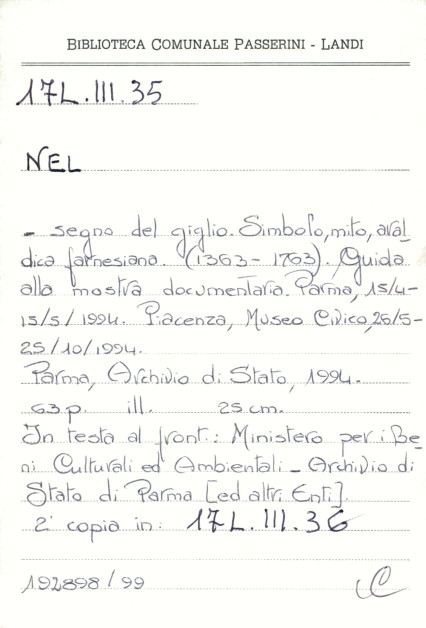 BIBLIOTECA COMUNALE PASSERINI - LANDI
17L.III.35
NEL
- segno del giglio. Simbolo, mito, aral
dica farnesiana. (1363 - 1763). Guida
alla mostra documentaria. Parma, 15/4-
15/5/1994. Piacenza, Museo Civico, 26/5-
25/10/1994.
Parma, Archivio di Stato, 1994.
63 p. ill. 25 cm.
In testa al front.: Ministero per i Be_
ni Culturali ed Ambientali - Archivio di
Stato di Parma [ed altri Enti].
2ª copia in: 17L.III.36
192898/99